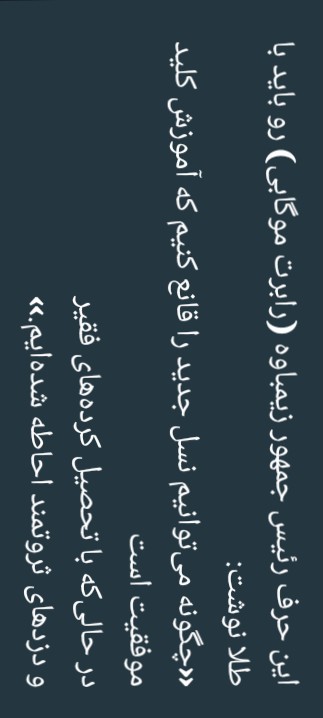 این حرف رئیس جمهور زیمباوه (رابرت موگابی) رو باید با
طلا نوشت:
«چگونه می‌توانیم نسل جدید را قانع کنیم که آموزش کلید
موفقیت است
در حالی‌که با تحصیل کرده‌های فقیر
و دزدهای ثروتمند احاطه شده‌ایم.»